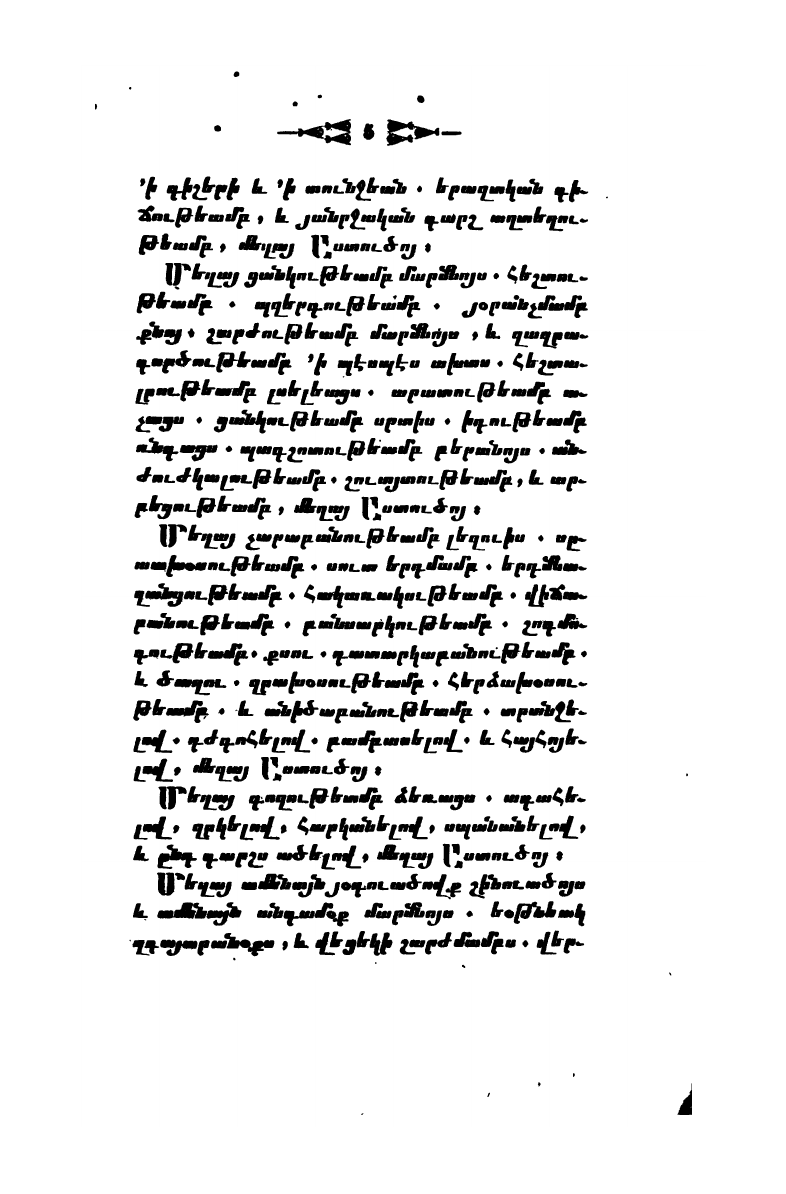 5
՚ի գիշերի և ՚ի տունջեան . երազական գի-
ճութեամբ , և յաներջական գարշ աղտեղու-
թեամբ , մեղայ Աստուծոյ ։
Մեղայ ցանկութեամբ մարմնոյս . հեշտու-
թեամբ . պղերգութեամբ . յօրանչմամբ
քնոյ . շարժութեամբ մարմնոյս , և զազրա-
գործութեամբ ՚ի պէսպէս ախտս . հեշտա-
լրութեամբ լսելեացս . արատութեամբ ա-
չացս . ցանկութեամբ սրտիս . իգութեամբ
ռնգացս . պագշոտութեամբ բերանոյս . ան-
ժուժկալութեամբ . շուայտութեամբ , և ար-
բեցութեամբ , մեղայ Աստուծոյ ։
Մեղայ չարաբանութեամբ լեզուիս . սը-
տախօսութեամբ . սուտ երդմամբ . երդմնա-
զանցութեամբ . հակառակութեամբ . վիճա-
բանութեամբ . բանսարկութեամբ . շոգմո-
գութեամբ . քսու . դատարկաբանութեամբ .
և ծաղու . զրախօսութեամբ . հերձախօսու-
թեամբ . և անիծաբանութեամբ . տրտնջե-
լով . դժգոհելով . բամբասելով . և հայհոյե-
լով , մեղայ Աստուծոյ ։
Մեղայ գողութեամբ ձեռացս . ագահե-
լով , զրկելով , հարկանելով , սպանանելով ,
և ընդ գարշս ածելով , մեղայ Աստուծոյ ։
Մեղայ ամենայն յօդուածովք շինուածոյս
և ամենայն անդամօք մարմնոյս . եօթնեակ
զգայարանօքս , և վեցեկի շարժմամբս . վեր-